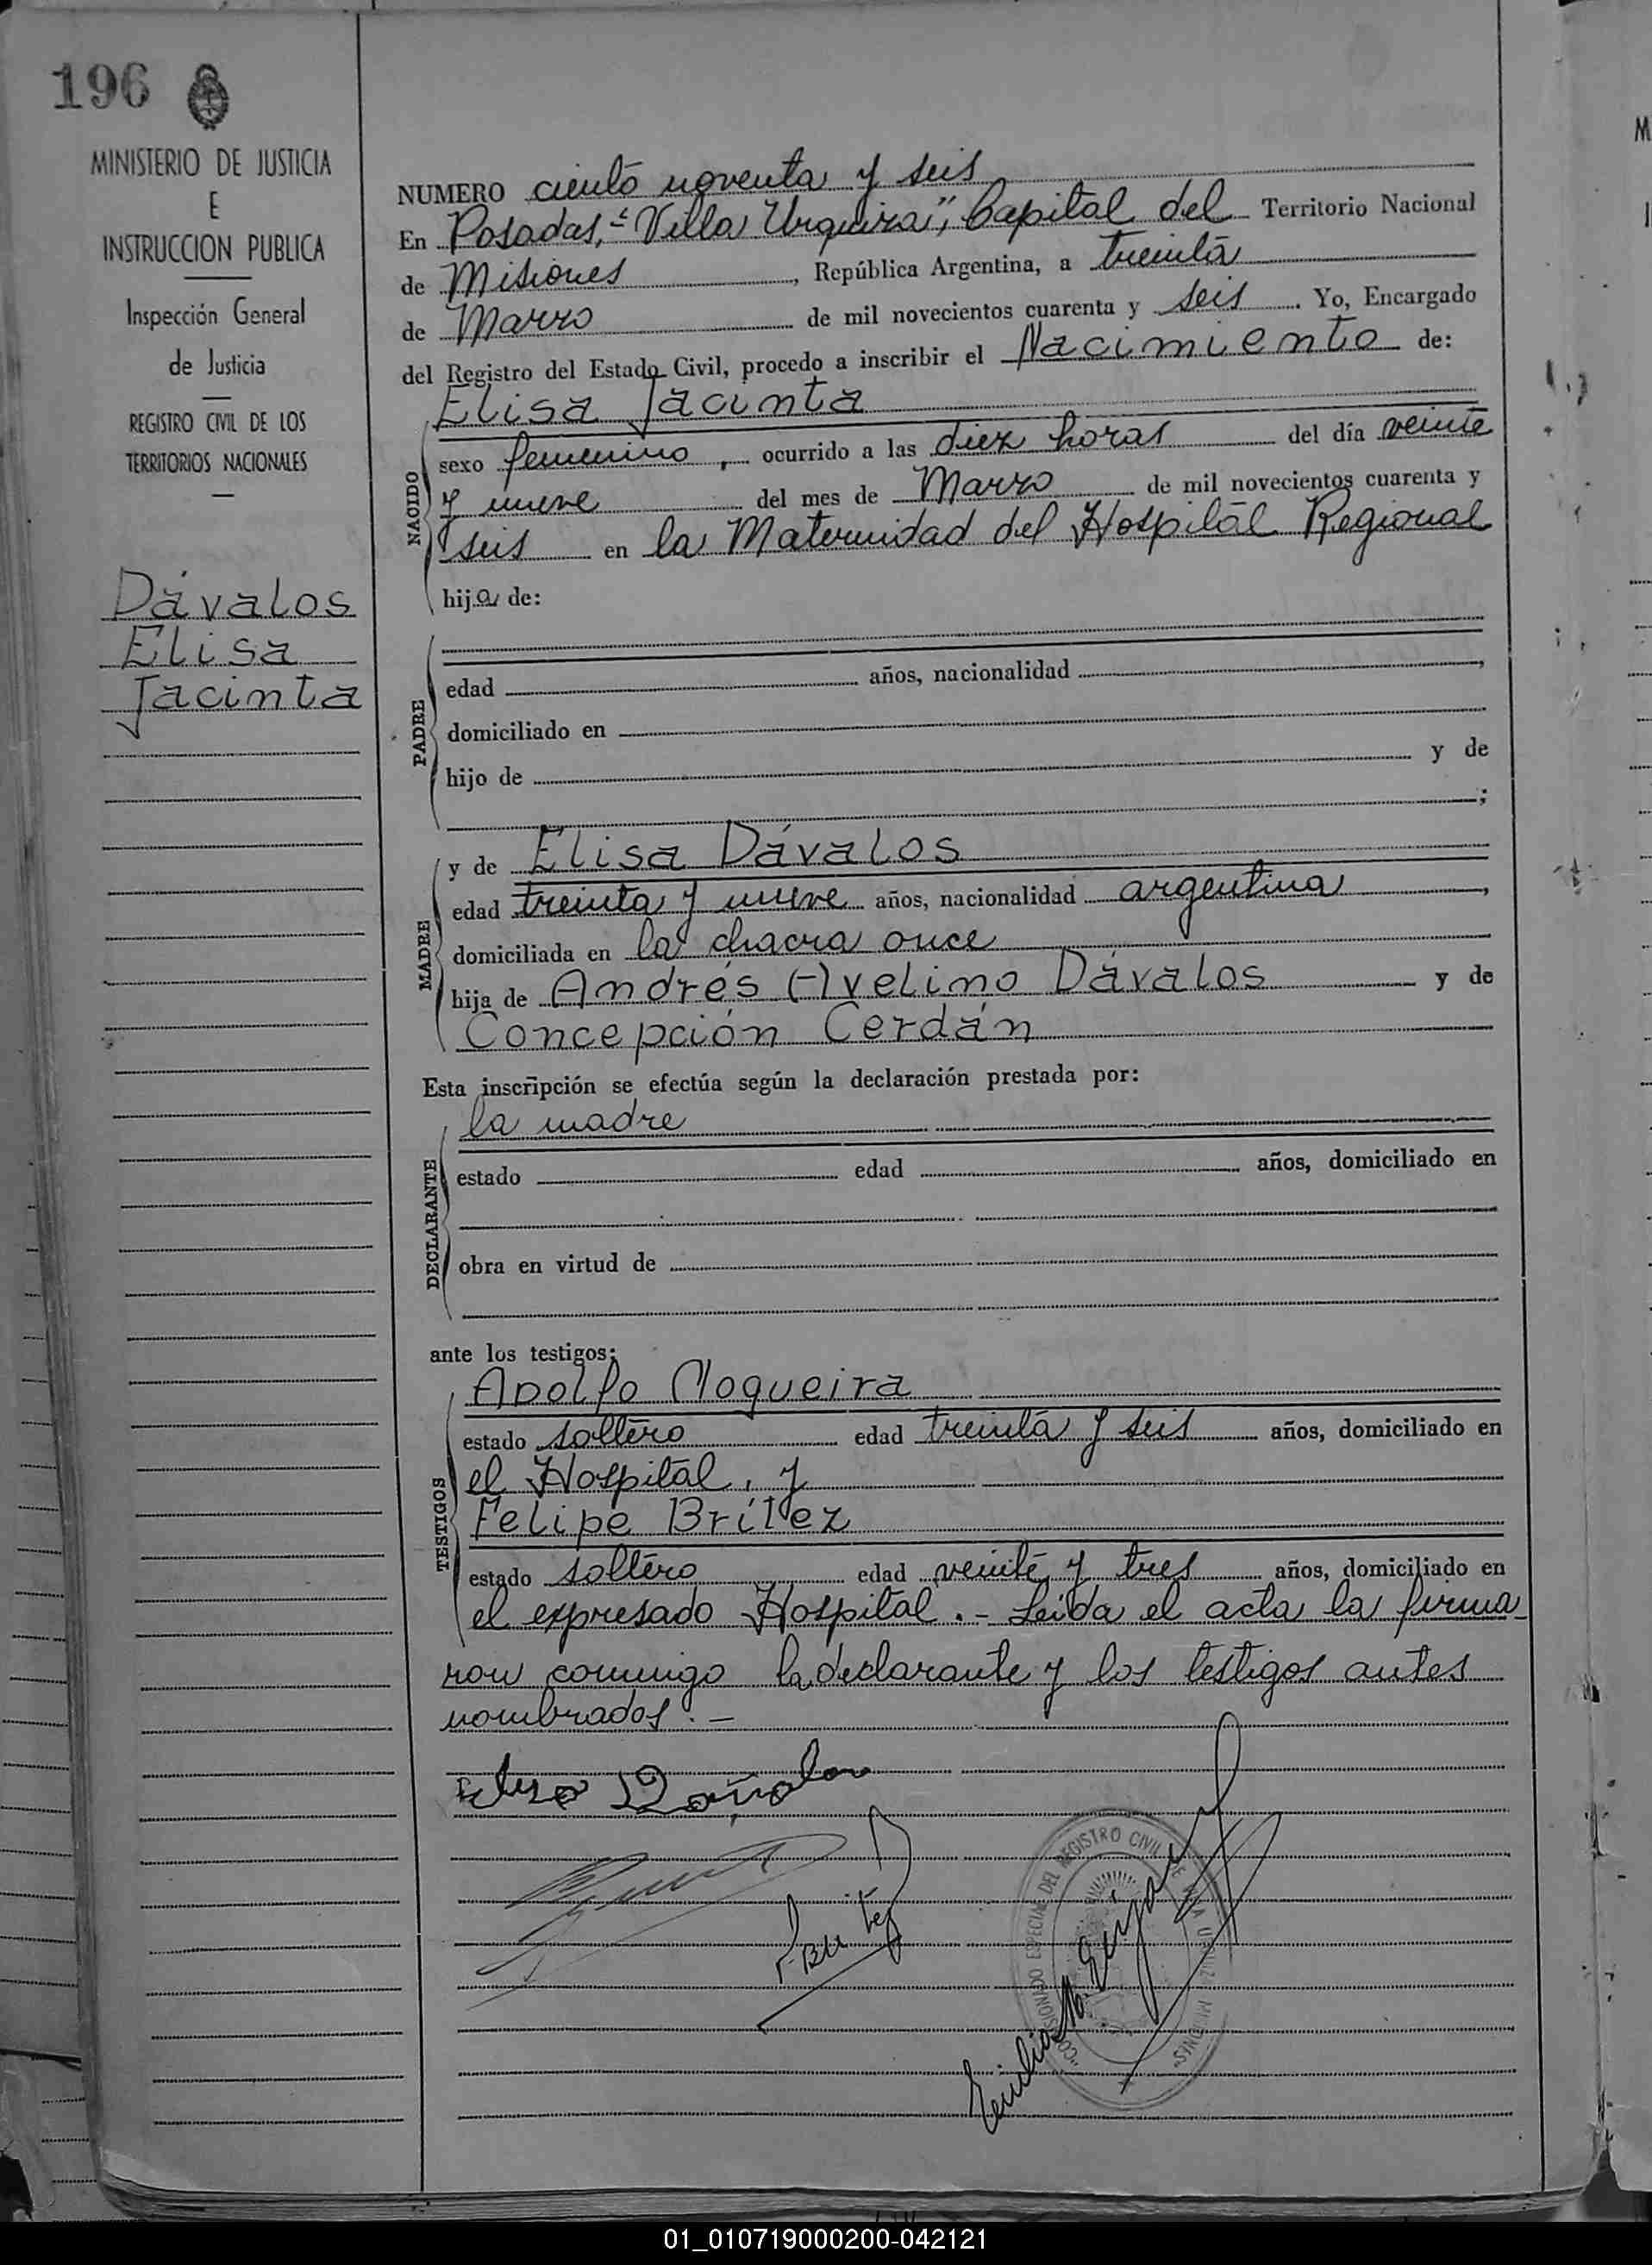 196
MINISTERIO DE JUSTICIA
E
INSTRUCCION PUBLICA
Inspección General
de Justicia
REGISTRO CIVIL DE LOS
TERRITORIOS NACIONALES
Dávalos
Elisa
Jacinta
NUMERO ciento noventa y seis
En Posadas, "Villa Urquiza", Capital del Territorio Nacional
de Misiones, República Argentina, a treinta
de Marzo de mil novecientos cuarenta y seis. Yo, Encargado
del Registro del Estado Civil, procedo a inscribir el Nacimiento de:
Elisa Jacinta
NACIDO
sexo femenino, ocurrido a las diez horas del día veinte
y nueve del mes de Marzo de mil novecientos cuarenta y
seis en la Maternidad del Hospital Regional
hija de:
PADRE
edad años, nacionalidad ,
domiciliado en
hijo de y de
;
MADRE
y de Elisa Dávalos
edad treinta y nueve años, nacionalidad argentina,
domiciliada en la chacra once
hija de Andrés Avelino Dávalos y de
Concepción Cerdán
Esta inscripción se efectúa según la declaración prestada por:
DECLARANTE
la madre
estado edad años, domiciliado en
obra en virtud de
ante los testigos:
TESTIGOS
Adolfo Nogueira
estado soltero edad treinta y seis años, domiciliado en
el Hospital, y
Felipe Brítez
estado soltero edad veinte y tres años, domiciliado en
el expresado Hospital.- Leída el acta la firma-
ron conmigo la declarante y los testigos antes
nombrados.-
F. Britez
Emilio
REGISTRO CIVIL DE
MISIONES
01_010719000200-042121